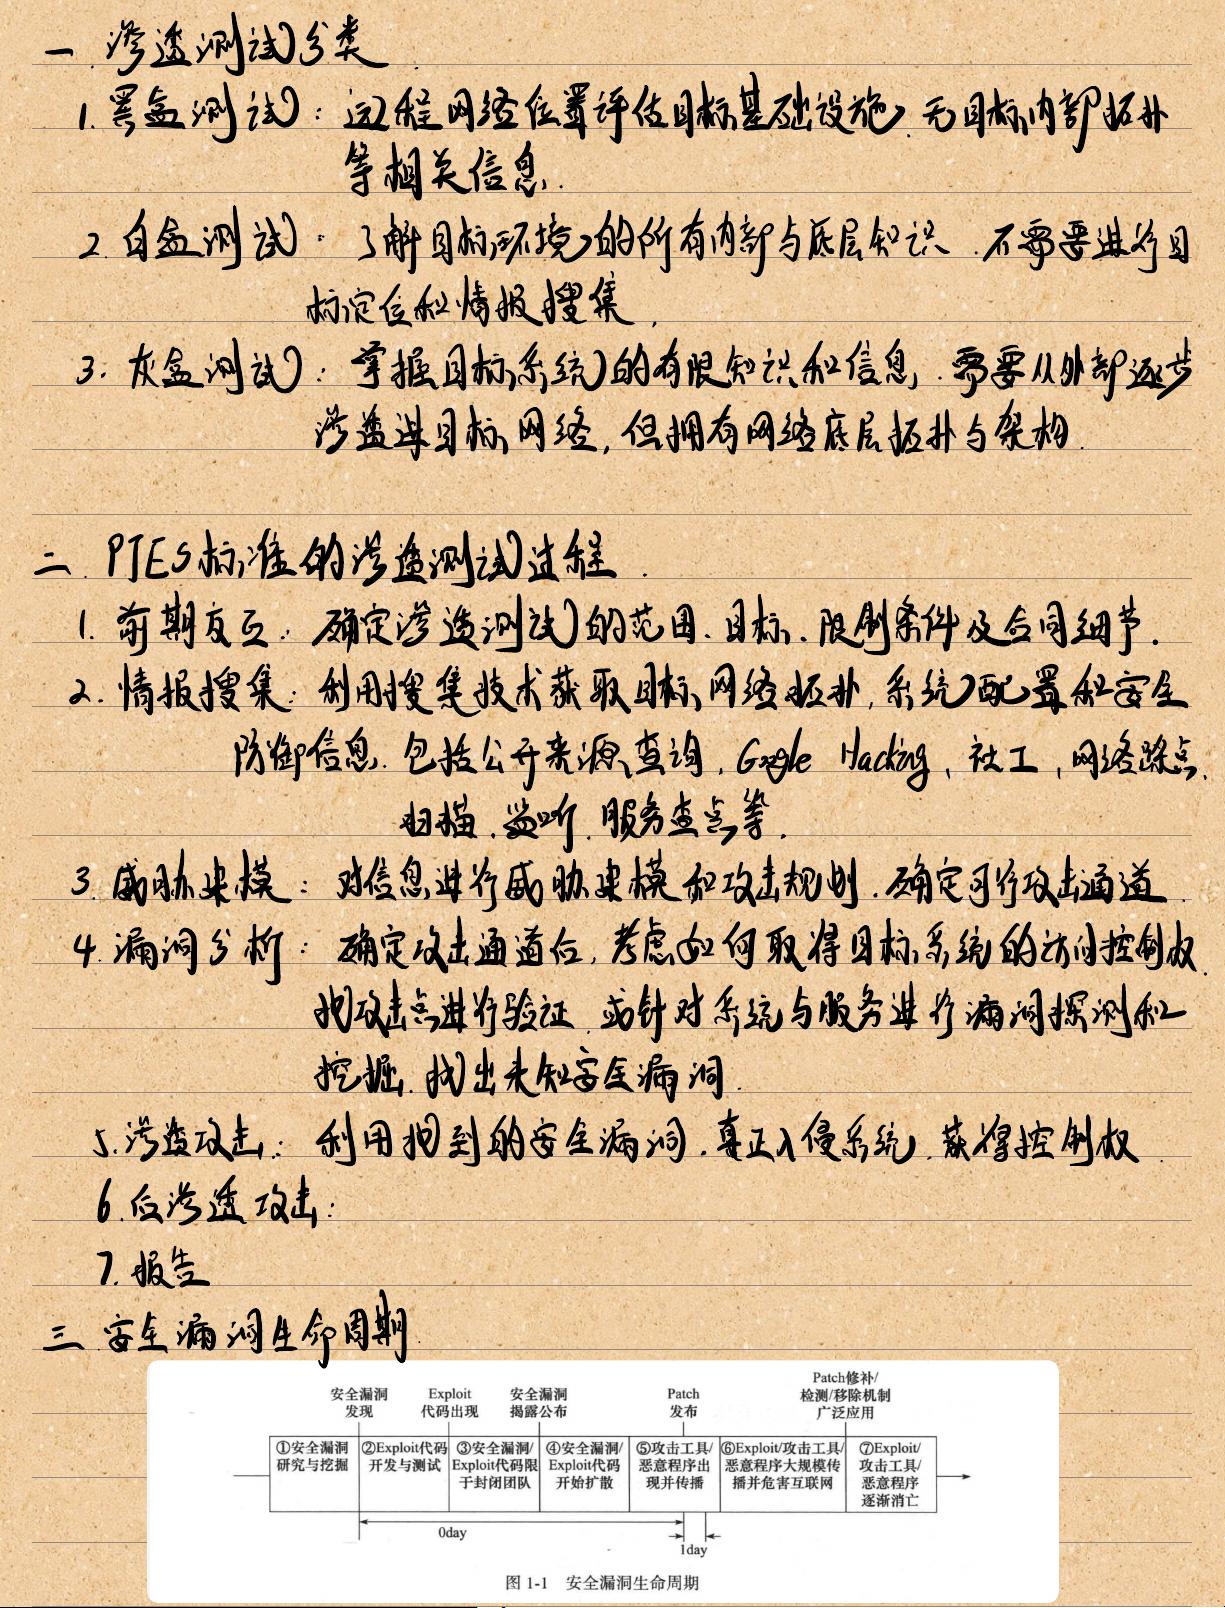 一. 渗透测试分类.
1. 黑盒测试：远程网络位置评估目标基础设施.无目标内部拓扑
等相关信息.
2. 白盒测试：了解目标环境的所有内部与底层知识.不需要进行目
标定位和情报搜集.
3. 灰盒测试：掌握目标系统的有限知识和信息.需要从外部逐步
渗透进目标网络,但拥有网络底层拓扑与架构.
二. PTES标准的渗透测试过程.
1. 前期交互：确定渗透测试的范围、目标、限制条件及合同细节.
2. 情报搜集：利用搜集技术获取目标网络拓扑,系统配置和安全
防御信息.包括公开来源查询,Google Hacking,社工,网络踩点.
扫描.监听.服务查点等.
3. 威胁建模：对信息进行威胁建模和攻击规划.确定可行攻击通道.
4. 漏洞分析：确定攻击通道后,考虑如何取得目标系统的访问控制权.
把攻击点进行验证.或针对系统与服务进行漏洞探测和
挖掘.找出未知安全漏洞.
5. 渗透攻击：利用找到的安全漏洞.真正入侵系统.获得控制权.
6. 后渗透攻击：
7. 报告
三. 安全漏洞生命周期.
安全漏洞
发现
Exploit
代码出现
安全漏洞
揭露公布
Patch
发布
Patch修补/
检测/移除机制
广泛应用
①安全漏洞
研究与挖掘
②Exploit代码
开发与测试
③安全漏洞/
Exploit代码限
于封闭团队
④安全漏洞/
Exploit代码
开始扩散
⑤攻击工具/
恶意程序出
现并传播
⑥Exploit/攻击工具/
恶意程序大规模传
播并危害互联网
⑦Exploit/
攻击工具/
恶意程序
逐渐消亡
0day
1day
图 1-1 安全漏洞生命周期